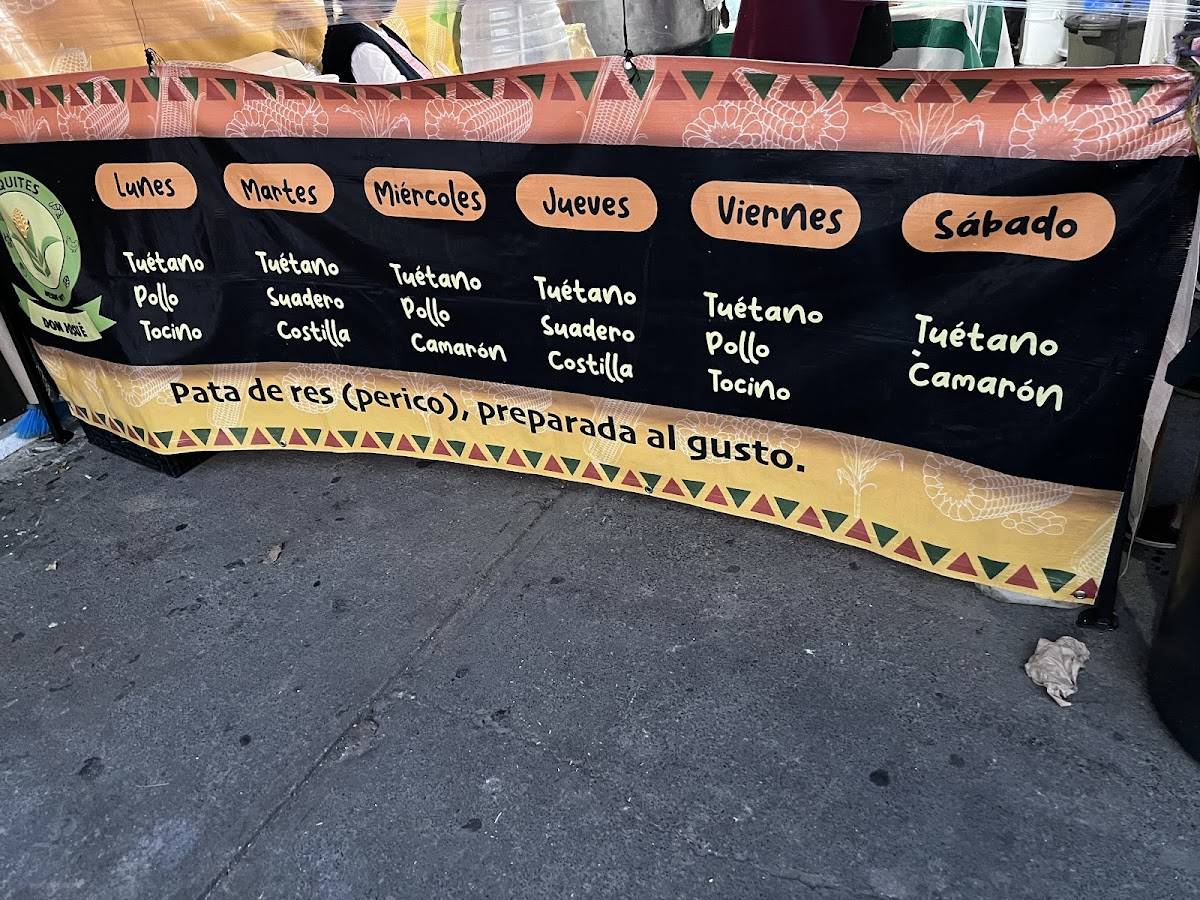 QUITES
DON JOSUÉ
Lunes
Tuétano
Pollo
Tocino
Martes
Tuétano
Suadero
Costilla
Miércoles
Tuétano
Pollo
Camarón
Jueves
Tuétano
Suadero
Costilla
Viernes
Tuétano
Pollo
Tocino
Sábado
Tuétano
Camarón
Pata de res (perico), preparada al gusto.